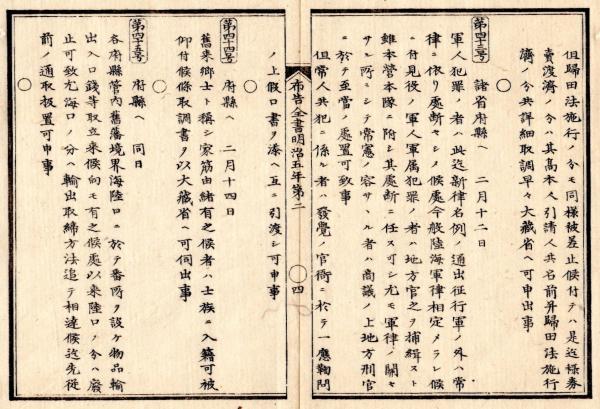 但歸田法施行ノ分モ同樣被差止候付テハ是迄祿券
賣渡濟ノ分ハ其高本人引請人共名前并歸田法施行
濟ノ分共詳細取調早々大藏省ヘ可申出事
○
第四十三号 諸省府縣ヘ 二月十二日
軍人犯罪ノ者ハ此迄新律名例ノ通出征行軍ノ外ハ常
律ニ依リ處斷セシメ候處今般陸海軍律相定メラレ候
ニ付見役ノ軍人軍属犯罪ノ者ハ地方官之ヲ捕緝スト
雖本營本隊ニ附シ其處斷ニ任ス可シ尤モ軍律ノ關セ
サル所ニシテ常憲ノ容サヽル者ハ商議ノ上地方刑官
ニ於テ至當ノ處置可致事
但常人共犯ニ係ル者ハ發覺ノ官衙ニ於テ一應鞫問
布告全書明治五年第二 ○ 四
ノ上假口書ヲ添ヘ互ニ引渡シ可申事
○
第四十四号 府縣ヘ 二月十四日
舊来鄉士ト稱シ家筋由緒有之候者ハ士族ニ入籍可被
仰付候條取調書ヲ以大藏省ヘ可伺出事
○
第四十五号 府縣ヘ 同日
各府縣管内舊藩境界海陸口ニ於テ番所ヲ設ケ物品輸
出入口錢等取立来候向モ有之候處以来陸口ノ分ハ廢
止可致尤海口ノ分ハ輸出取締方法追テ相達候迄先従
前ノ通取扱置可申事
○